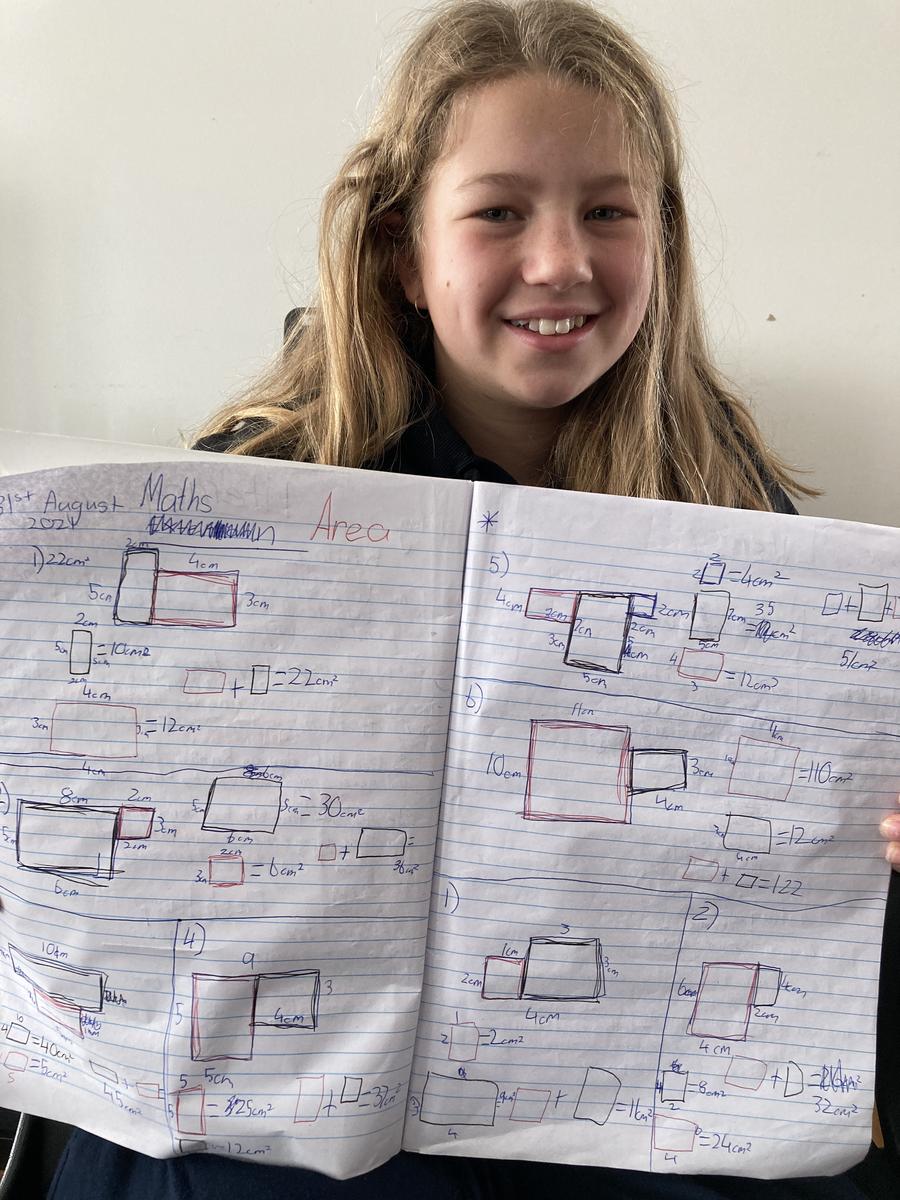 31st August Maths
2021
Area
1) 22cm²
2cm
4cm
5cm
3cm
2cm
5cm = 10cm²
4cm
3cm = 12cm²
4cm
+ = 22cm²
8cm 2cm
3cm
2cm
6cm
6cm
5cm 5cm = 30cm²
6cm
2cm
3cm = 6cm²
+ =
36cm²
10cm
10
4 = 40cm²
= 5cm²
5
+
45cm²
4)
9
5
3
4cm
5cm
5
5 = 25cm²
+ = 37cm²
= 12cm²
*
5)
4cm
2cm
2cm
3cm
7cm
2cm
5cm
2
2 = 4cm²
7cm 35
= cm²
5cm
4 = 12cm²
3
+ +
51cm²
6)
11cm
10cm
3cm
4cm
11cm
10 = 110cm²
3cm = 12cm²
4cm
+ = 122
1)
3
1cm
2cm
3cm
4cm
1
2 = 2cm²
3
4
+ = 11cm²
2)
6cm
4cm
2cm
4cm
4 = 8cm²
2
+ =
32cm²
6 = 24cm²
4